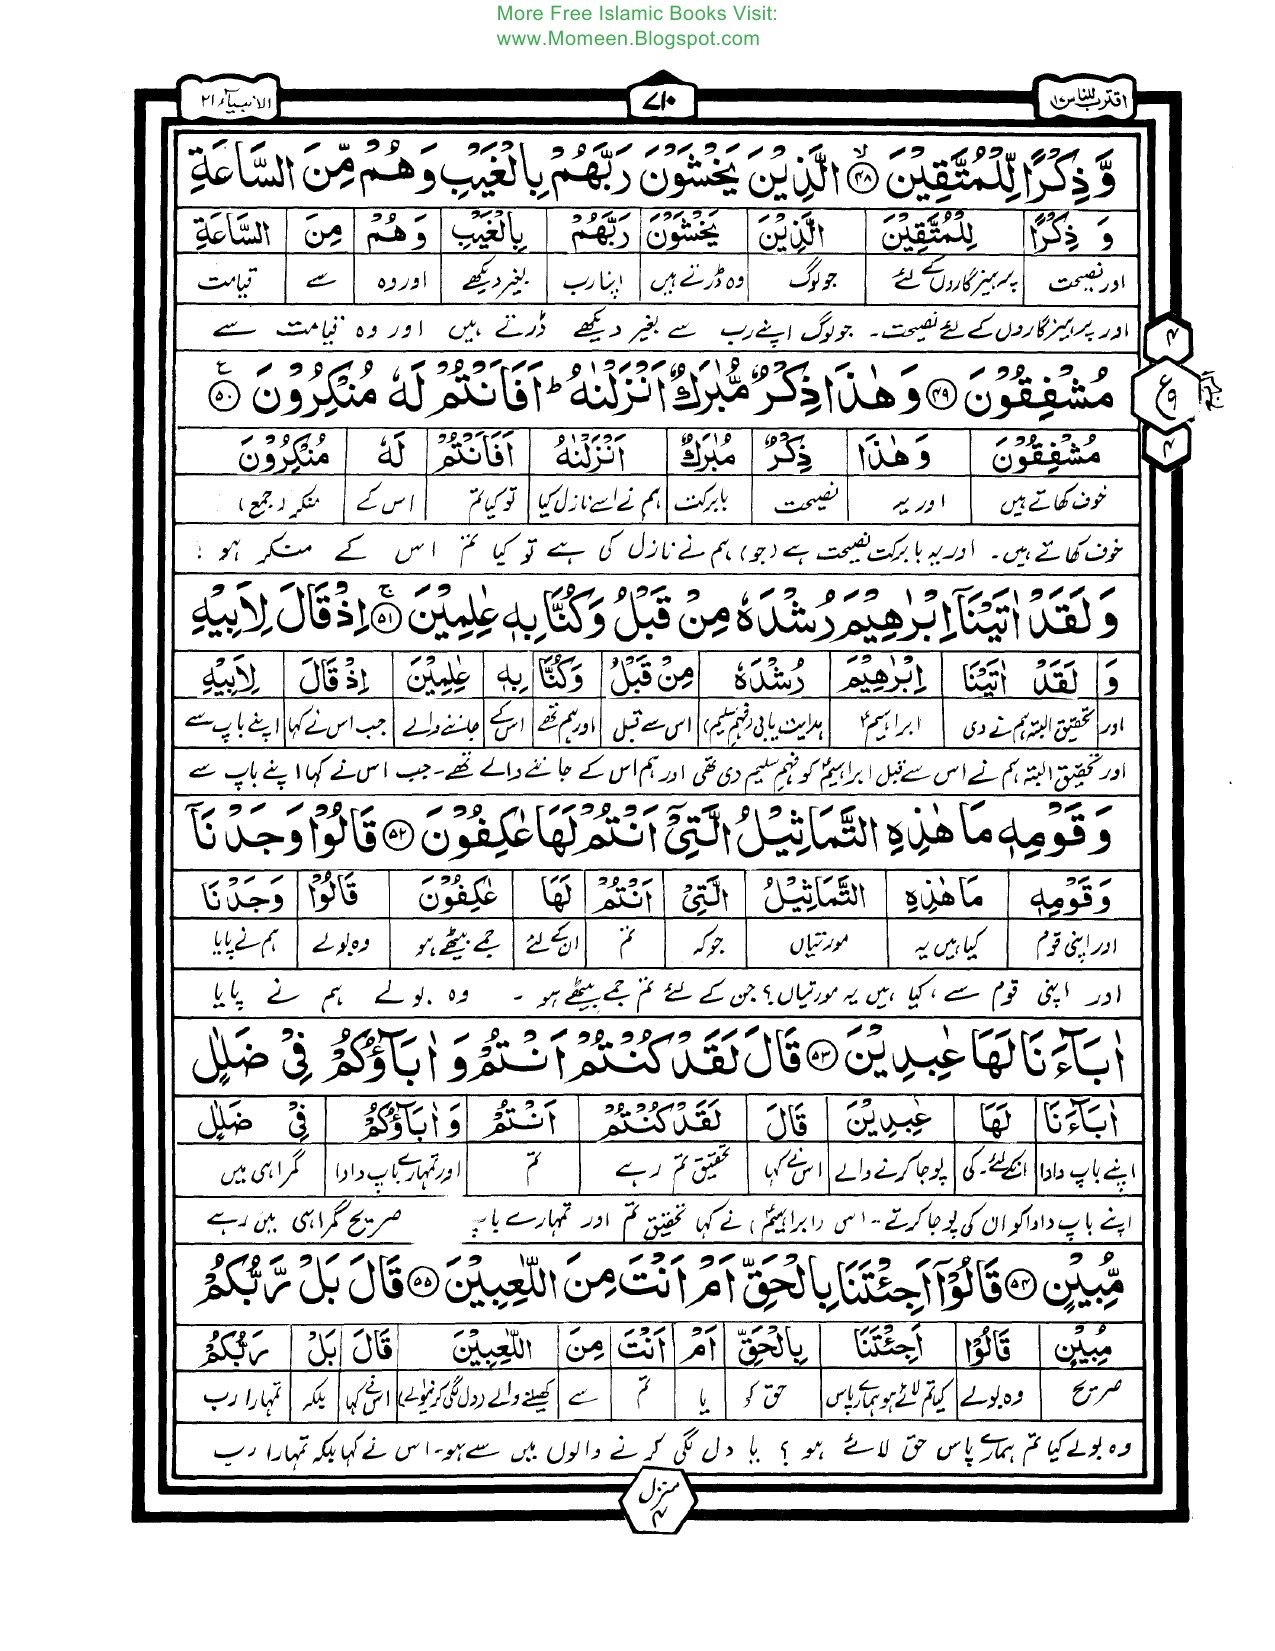 More Free Islamic Books Visit:
www.Momeen.Blogspot.com
اقترب للناس ۱۷
۷۱۰
الانبیآء ۲۱
وَّ ذِكْرًا لِّلْمُتَّقِيْنَ ۙ﴿۴۸﴾ الَّذِيْنَ يَخْشَوْنَ رَبَّهُمْ بِالْغَيْبِ وَهُمْ مِّنَ السَّاعَةِ
وَ ذِكْرًا لِلْمُتَّقِيْنَ الَّذِيْنَ يَخْشَوْنَ رَبَّهُمْ بِالْغَيْبِ وَهُمْ مِنَ السَّاعَةِ
اور نصیحت پرہیزگاروں کے لئے جو لوگ وہ ڈرتے ہیں اپنا رب بغیر دیکھے اور وہ سے قیامت
اور پرہیزگاروں کے لئے نصیحت۔ جو لوگ اپنے رب سے بغیر دیکھے ڈرتے ہیں اور وہ قیامت سے
مُشْفِقُوْنَ ﴿۴۹﴾ وَهٰذَا ذِكْرٌ مُّبٰرَكٌ اَنْزَلْنٰهُ ؕ اَفَاَنْتُمْ لَهٗ مُنْكِرُوْنَ ﴿۵۰﴾ ع
مُشْفِقُوْنَ وَهٰذَا ذِكْرٌ مُبٰرَكٌ اَنْزَلْنٰهُ اَفَاَنْتُمْ لَهٗ مُنْكِرُوْنَ
خوف کھاتے ہیں اور یہ نصیحت بابرکت ہم نے اسے نازل کیا تو کیا تم اس کے منکر (جمع)
خوف کھاتے ہیں۔ اور یہ بابرکت نصیحت ہے (جو) ہم نے نازل کی ہے تو کیا تم اس کے منکر ہو؟
وَلَقَدْ اٰتَيْنَآ اِبْرٰهِيْمَ رُشْدَهٗ مِنْ قَبْلُ وَكُنَّا بِهٖ عٰلِمِيْنَ ۚ﴿۵۱﴾ اِذْ قَالَ لِاَبِيْهِ
وَ لَقَدْ اٰتَيْنَا اِبْرٰهِيْمَ رُشْدَهٗ مِنْ قَبْلُ وَكُنَّا بِهٖ عٰلِمِيْنَ اِذْ قَالَ لِاَبِيْهِ
اور تحقیق البتہ ہم نے دی ابراہیمؑ ہدایت یابی (فہم سلیم) اس سے قبل اور ہم تھے اس کے جاننے والے جب اس نے کہا اپنے باپ سے
اور تحقیق البتہ ہم نے اس سے قبل ابراہیمؑ کو فہم سلیم دی تھی اور ہم اس کے جاننے والے تھے۔ جب اس نے کہا اپنے باپ سے
وَقَوْمِهٖ مَا هٰذِهِ التَّمَاثِيْلُ الَّتِيْٓ اَنْتُمْ لَهَا عٰكِفُوْنَ ﴿۵۲﴾ قَالُوْا وَجَدْنَآ
وَقَوْمِهٖ مَا هٰذِهِ التَّمَاثِيْلُ الَّتِيْ اَنْتُمْ لَهَا عٰكِفُوْنَ قَالُوْا وَجَدْنَا
اور اپنی قوم کیا ہیں یہ مورتیاں جو کہ تم ان کے لئے جمے بیٹھے ہو وہ بولے ہم نے پایا
اور اپنی قوم سے، کیا ہیں یہ مورتیاں؟ جن کے لئے تم جمے بیٹھے ہو ۔ وہ بولے ہم نے پایا
اٰبَآءَنَا لَهَا عٰبِدِيْنَ ﴿۵۳﴾ قَالَ لَقَدْ كُنْتُمْ اَنْتُمْ وَ اٰبَآؤُكُمْ فِيْ ضَلٰلٍ
اٰبَآءَنَا لَهَا عٰبِدِيْنَ قَالَ لَقَدْ كُنْتُمْ اَنْتُمْ وَاٰبَآؤُكُمْ فِيْ ضَلٰلٍ
اپنے باپ دادا انکے لئے۔ کی پوجا کرنے والے اس نے کہا تحقیق تم رہے تم اور تمہارے باپ دادا گمراہی میں
اپنے باپ دادا کو ان کی پوجا کرتے۔ اس (ابراہیمؑ) نے کہا تحقیق تم اور تمہارے باپ صریح گمراہی میں رہے
مُّبِيْنٍ ﴿۵۴﴾ قَالُوْٓا اَجِئْتَنَا بِالْحَقِّ اَمْ اَنْتَ مِنَ اللّٰعِبِيْنَ ﴿۵۵﴾ قَالَ بَلْ رَّبُّكُمْ
مُبِيْنٍ قَالُوْا اَجِئْتَنَا بِالْحَقِّ اَمْ اَنْتَ مِنَ اللّٰعِبِيْنَ قَالَ بَلْ رَبُّكُمْ
صریح وہ بولے کیا تم لائے ہو ہمارے پاس حق کو یا تم سے کھیلنے والے (دل لگی کرنیوالے) اس نے کہا بلکہ تمہارا رب
وہ بولے کیا تم ہمارے پاس حق لائے ہو؟ یا دل لگی کرنے والوں میں سے ہو۔ اس نے کہا بلکہ تمہارا رب
۴
ع ۹
۴
منزل ۴